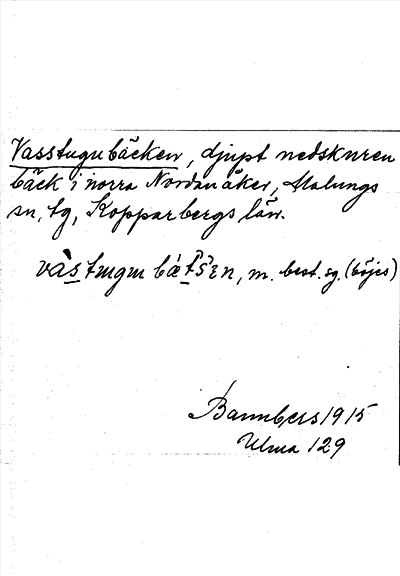 Vasstugubäcken, djupt nedskuren
bäck i norra Nordanåker, Malungs
sn, tg, Kopparbergs län.
m. best. sg. (böjes)
Bannbers 1915
Ulma 129